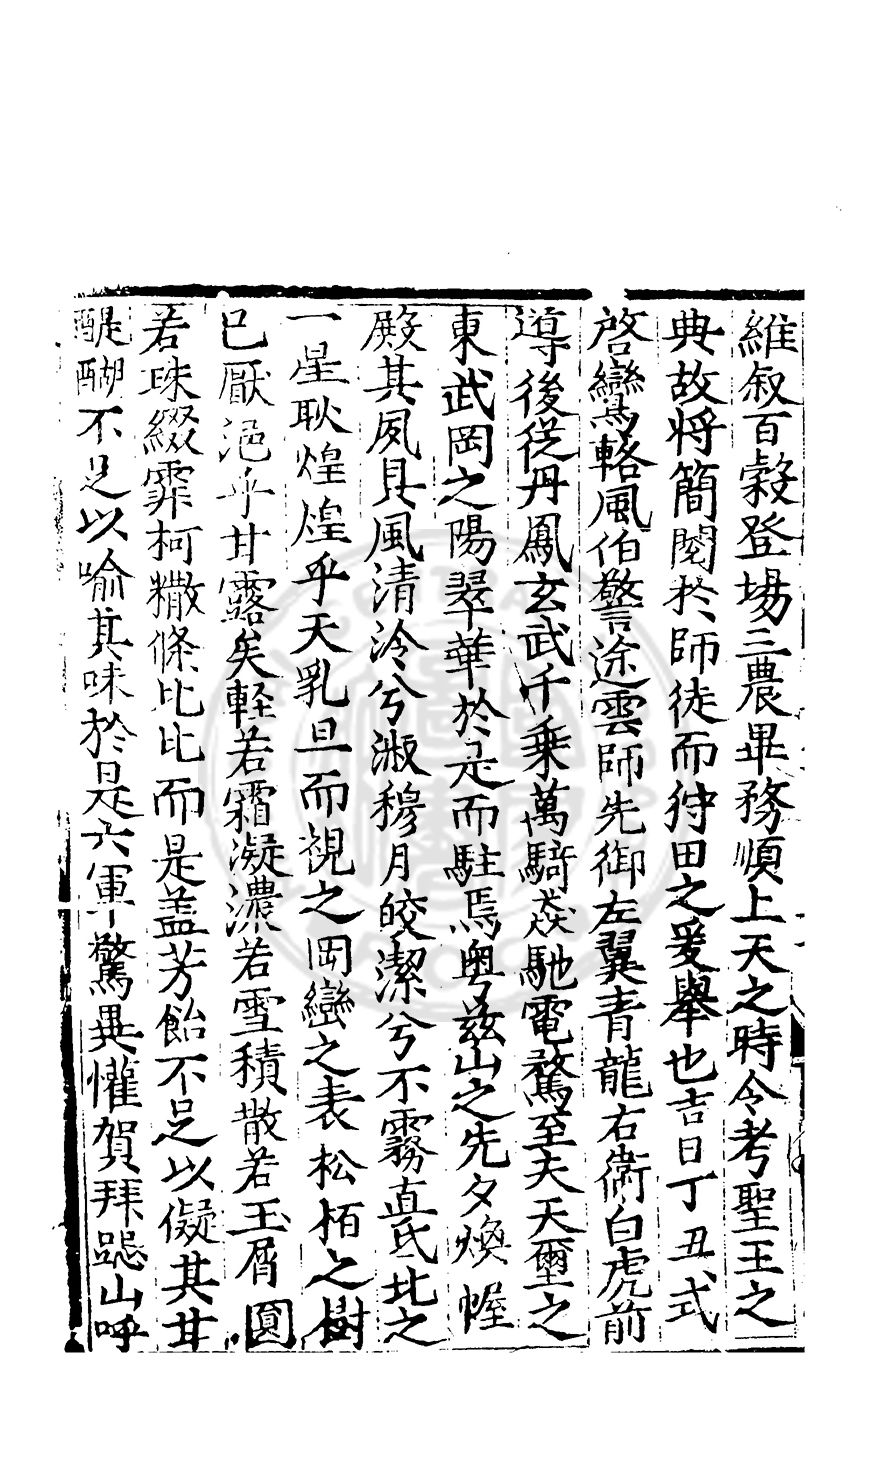 維叙百穀登場三農畢務順上天之時令考聖王之
典故將簡閱於師徒而狩田之爰舉也吉日丁丑式
啓鸞輅風伯警途雲師先御左翼青龍右衛白虎前
導後從丹鳳玄武千乘萬騎猋馳電騖至夫天壐之
東武岡之陽翠華於是而駐焉粤兹山之先夕煥幄
殿其夙具風清泠兮淑穆月皎潔兮不霧直氐北之
一星耿煌煌乎天乳旦而視之岡巒之表松栢之樹
已厭浥乎甘露矣輕若霜凝濃若雪積散若玉屑圓
若珠綴霏柯糝條比比而是盖芳飴不足以儗其甘
醍醐不足以喻其味於是六軍驚異懽賀拜跽山呼